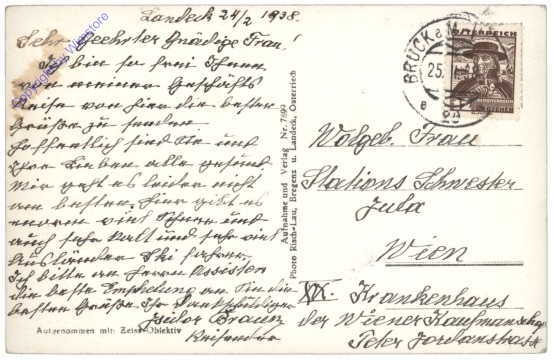 Landeck 24/2 1938.
Sehr Geehrter Gnädige Frau!
Ich bin so frei Ihnen
von meiner Geschäfts
Reise von hier die besten
Grüße zu senden
Hoffentlich sind Sie und
Ihre Lieben alle gesund
Mir geht es leider nicht
am besten. Hier gibt es
enorm viel Schnee und
auch sehr kalt und sehr viel
Ausländer Ski fahrer.
Ich bitte an Herrn Assisten
die beste Empfehlung an Sie die
besten Grüße Ihr Dankschuldiger
Isidor Braun
Reisender
Aufgenommen mit: Zeiss-Objektiv
Aufnahme und Verlag Nr. 7899
Photo Risch-Lau, Bregenz u. Landeck, Österreich
BRUCK a. M.
25.
ÖSTERREICH
Wolgeb. Frau
Stations Schwester
Jula
Wien
XIX. Krankenhaus
der Wiener Kaufmanschaft
Peter Jordanstraße
Copyright by Wienstore